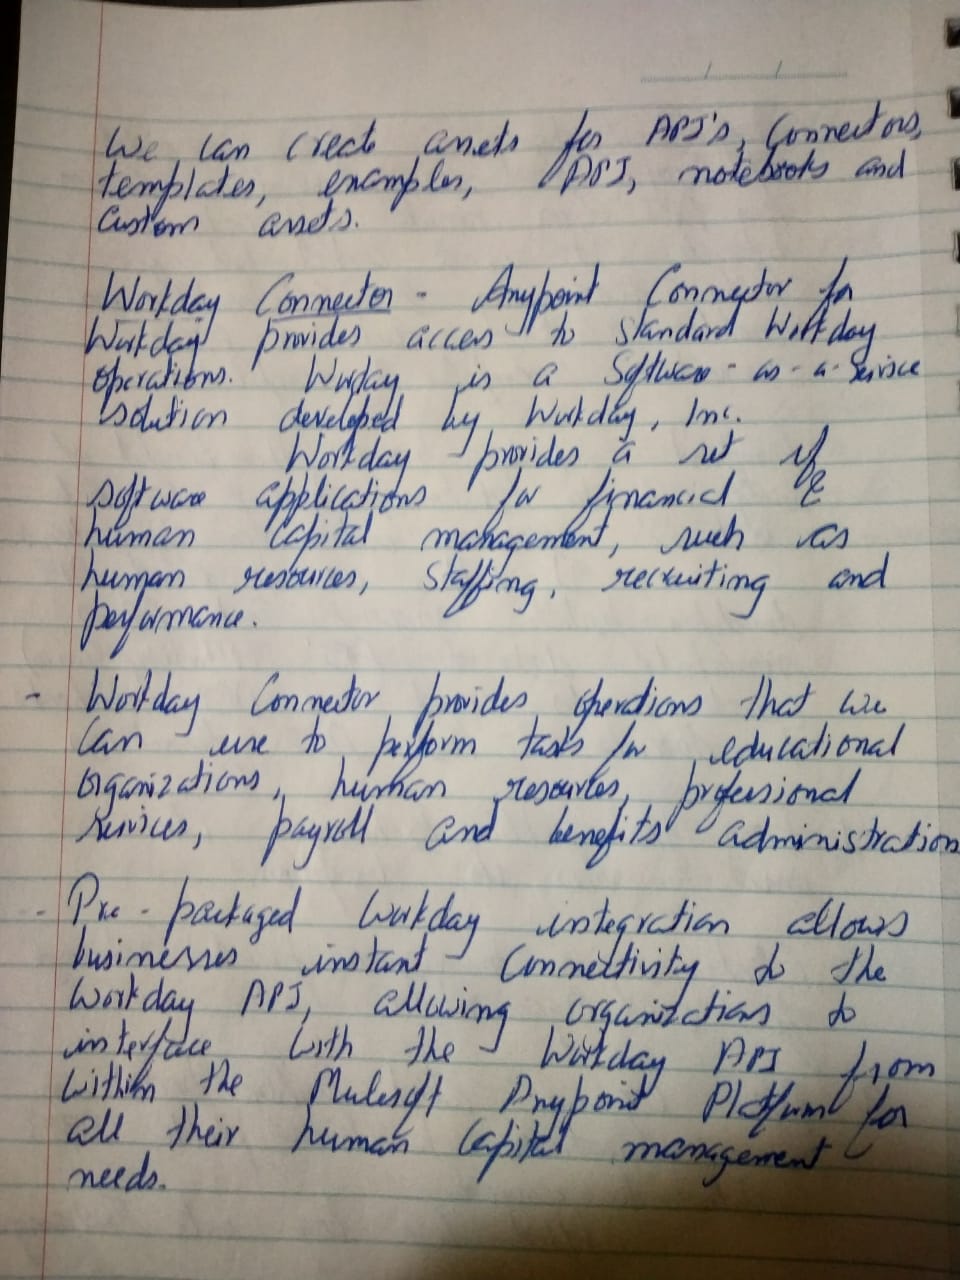 We can create assets for API's, Connectors,
templates, examples, API, notebooks and
Custom assets.
Workday Connector - Anypoint Connector for
Workday provides access to standard Workday
operations. Worday is a Software-as-a-Service
solution developed by Workday, Inc.
Workday provides a set of
software applications for financial &
human capital management, such as
human resources, staffing, recruiting and
performance.
- Workday Connector provides operations that we
can use to perform tasks for educational
organizations, human resources, professional
services, payroll and benefits administration
- Pre-packaged Workday integration allows
businesses instant connectivity to the
Workday API, allowing organizations to
interface with the Workday API from
within the Mulesoft Anypoint Platform for
all their human capital management
needs.